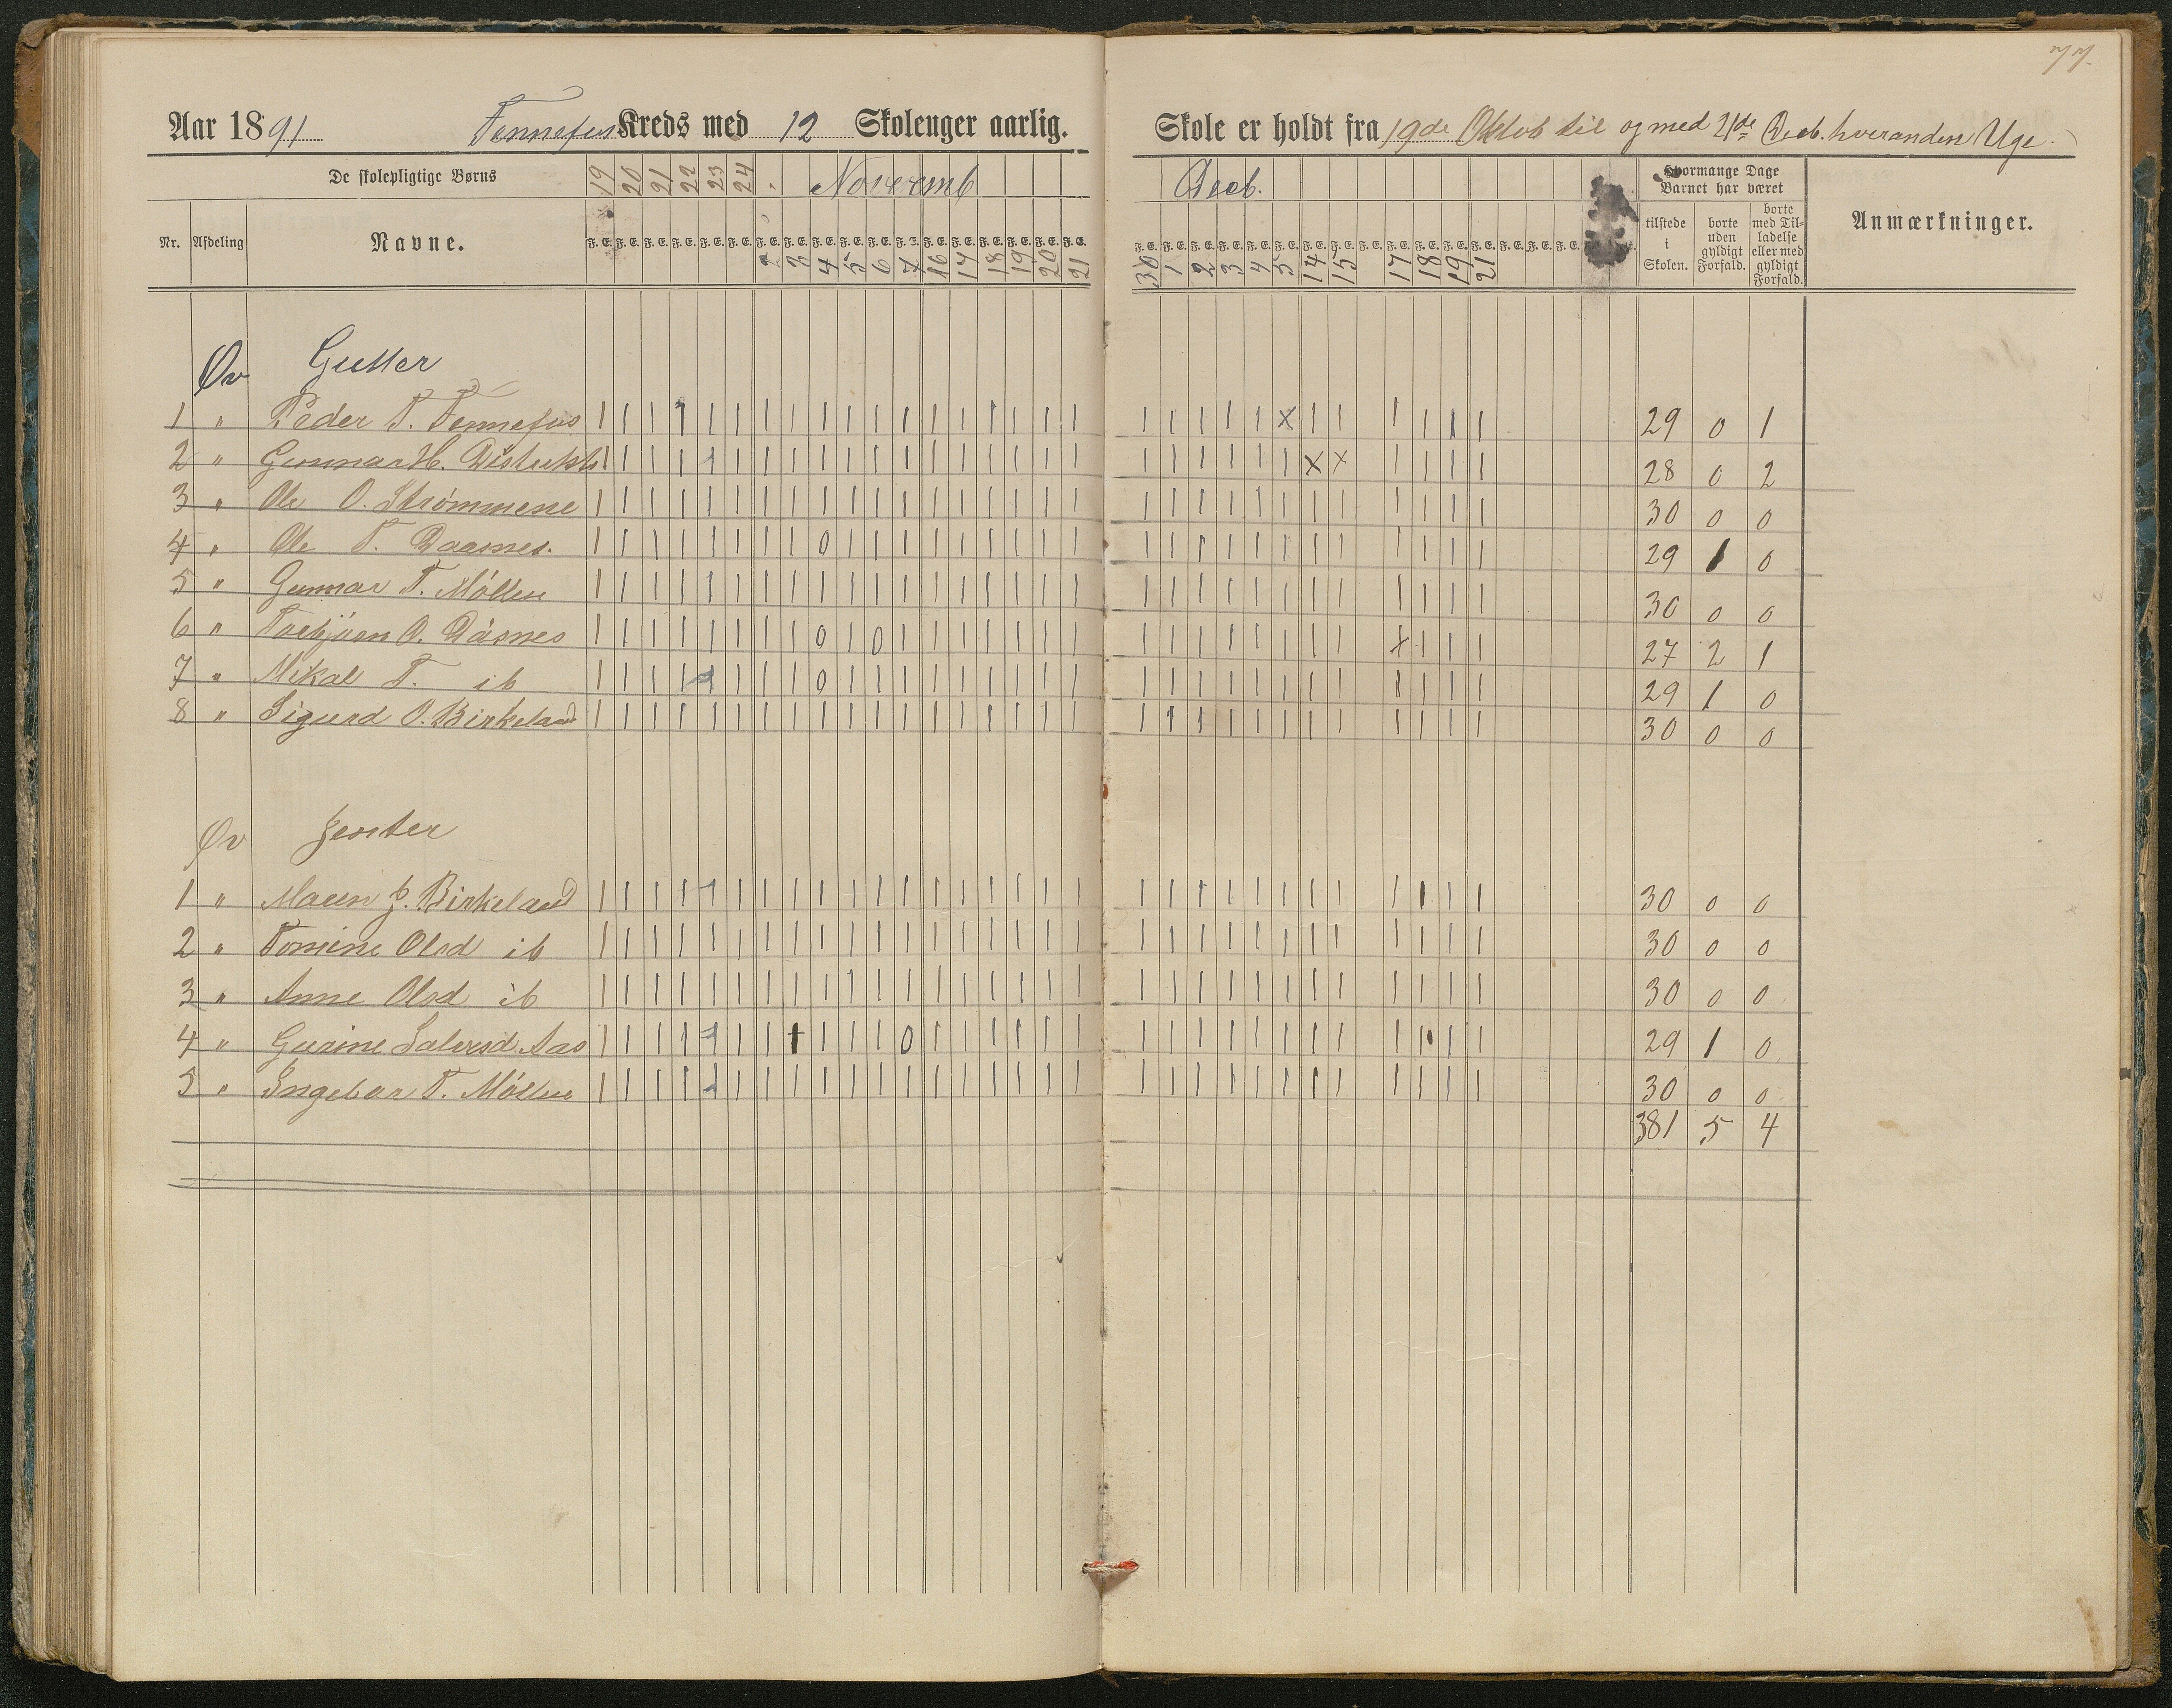 77.
Aar 1891 Fennefos Kreds med 12 Skoleuger aarlig.
Skole er holdt fra 19de Oktob til og med 21de Deeb. hveranden Uge.
De skolepligtige Børns
19 20 21 22 23 24 Novemb
Deeb.
Hvormange Dage Barnet har været
Anmærkninger.
Nr. Afdeling Navne.
F. E. F. E. F. E. F. E. F. E. F. E. F. E. F. E. F. E. F. E. F. E. F. E. F. E. F. E. F. E. F. E. F. E. F. E.
2 3 4 5 6 7 16 17 18 19 20 21
30 1 2 3 4 5 14 15 17 18 19 21
tilstede i Skolen.
borte uden gyldigt Forfald.
borte med Til-ladelse eller med gyldigt Forfald.
Øv Gutter
1 " Peder T. Fennefos 29 0 1
2 " Gunnar H. 28 0 2
3 " Ole O. Strømmene 30 0 0
4 " Ole T. Daasnes. 29 1 0
5 " Gunnar T. Möllen 30 0 0
6 " Torbjörn O. Dåsnes 27 2 1
7 " Mikal T. ib 29 1 0
8 " Sigurd O. Birkeland 30 0 0
Øv Jenter
1 " Maren J. Birkeland 30 0 0
2 " Tomine Olsd ib 30 0 0
3 " Anne Olsd ib 30 0 0
4 " Gurine Salvesd. Aas 29 1 0
5 " Ingebor T. Möllen 30 0 0
381 5 4